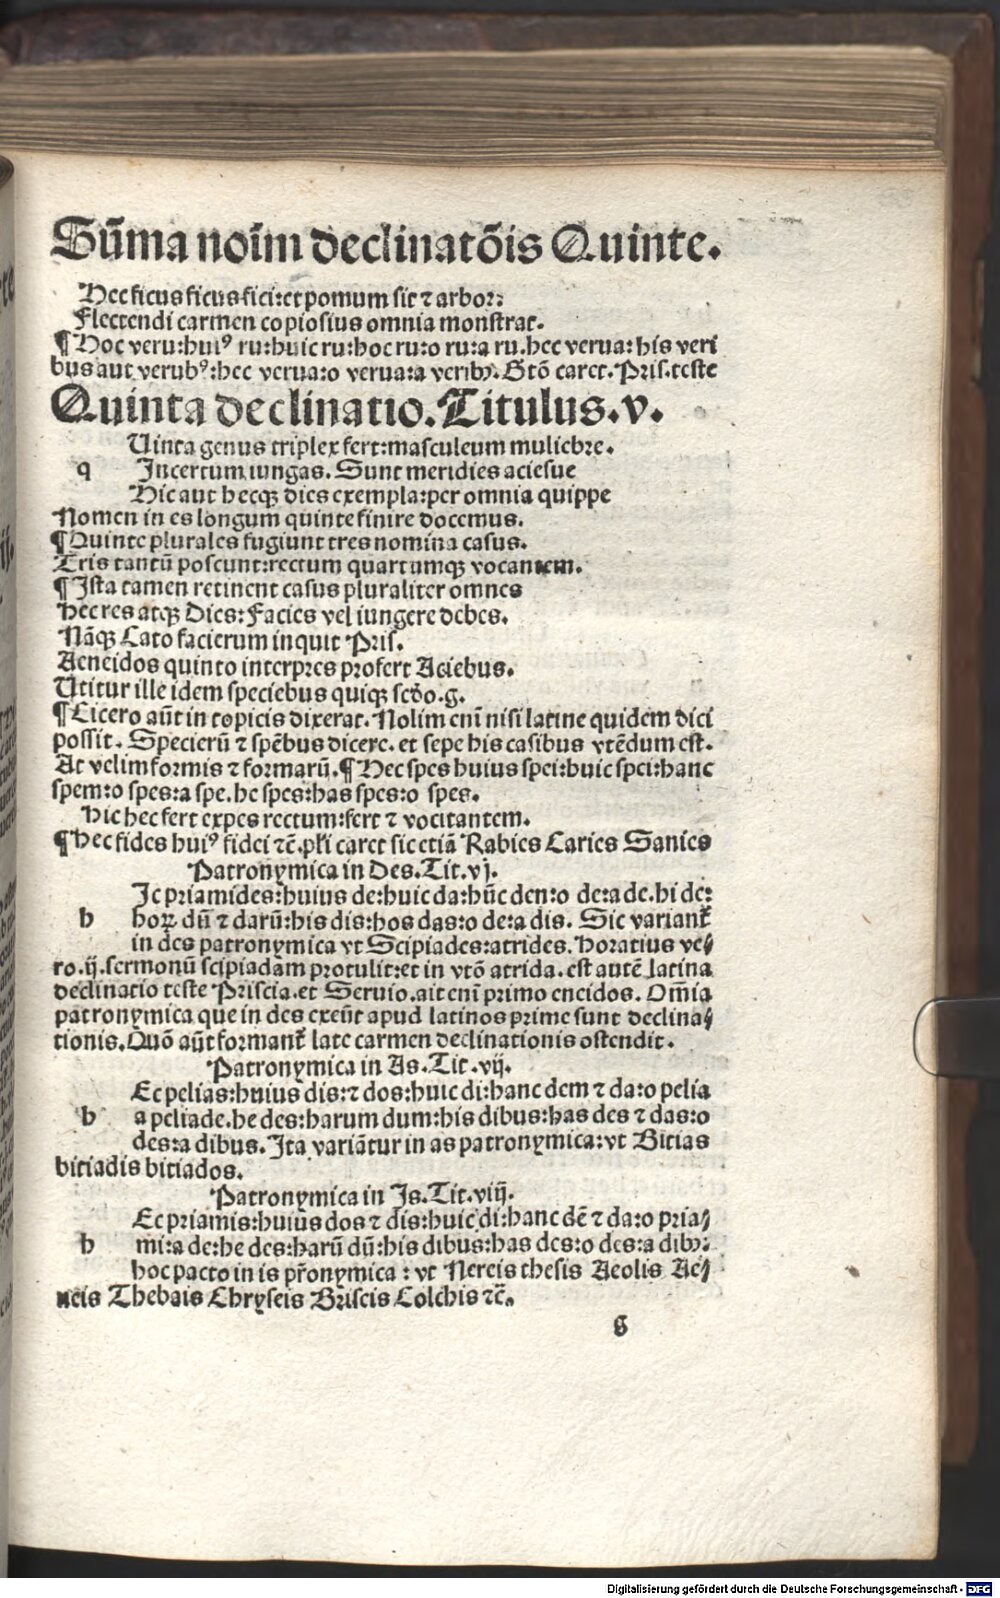 Sūma noīm declinatōis Quinte.
Hec ficus ficus fici: et pomum sit ⁊ arbor:
Flectendi carmen copiosius omnia monstrat.
¶ Hoc veru: huiꝰ ru: huic ru: hoc ru: o ru: a ru. hec verua: his veri
bus aut verubꝰ: hec verua: o verua: a veribꝫ. Gtō caret. Pris. teste
Quinta declinatio. Titulus. v.
Uinta genus triplex fert: masculeum muliebre.
q Incertum iungas. Sunt meridies aciesue
Hic aut hecqꝫ dies exempla: per omnia quippe
Nomen in es longum quinte finire docemus.
¶ Quinte plurales fugiunt tres nomina casus.
Tris tantū poscunt: rectum quartumqꝫ vocantem.
¶ Ista tamen retinent casus pluraliter omnes
Hec res atqꝫ Dies: Facies vel iungere debes.
Nāqꝫ Cato facierum inquit Pris.
Aeneidos quinto interpres profert Aciebus.
Utitur ille idem speciebus quiqꝫ scdo. g.
¶ Cicero aūt in topicis dixerat. Nolim enī nisi latine quidem dici
possit. Specierū ⁊ spēbus dicere. et sepe his casibus vtēdum est.
At velim formis ⁊ formarū. ¶ Hec spes huius spei: huic spei: hanc
spem: o spes: a spe. he spes: has spes: o spes.
Hic hec fert expes rectum: fert ⁊ vocitantem.
¶ Hec fides huiꝰ fidei ⁊c̄. pl̄i caret sic etiā Rabies Caries Sanies
Patronymica in Des. Tit. vj.
Ic priamides: huius de: huic da: hūc den: o de: a de. hi de:
h hoꝝ dū ⁊ darū: his dis: hos das: o de: a dis. Sic variant᷑
in des patronymica vt Scipiades: atrides. Horatius ve⸗
ro. ij. sermonū scipiadam protulit: et in vtō atrida. est autē latina
declinatio teste Priscia. et Seruio. ait enī primo eneidos. Om̄ia
patronymica que in des exeūt apud latinos prime sunt declina⸗
tionis. Quō aūt formant᷑ late carmen declinationis ostendit.
Patronymica in As. Tit. vij.
Ec pelias: huius dis: ⁊ dos: huic di: hanc dem ⁊ da: o pelia
h a peliade. he des: harum dum: his dibus: has des ⁊ das: o
des: a dibus. Ita variātur in as patronymica: vt Bitias
bitiadis bitiados.
Patronymica in Is. Tit. viij.
Ec priamis: huius dos ⁊ dis: huic di: hanc dē ⁊ da: o pria⸗
h mi: a de: he des: harū dū: his dibus: has des: o des: a dibꝫ:
hoc pacto in is pr̄onymica: vt Nereis thesis Aeolis Ae⸗
neis Thebais Chryseis Briseis Colchis ⁊c̄.
g
Digitalisierung gefördert durch die Deutsche Forschungsgemeinschaft - DFG